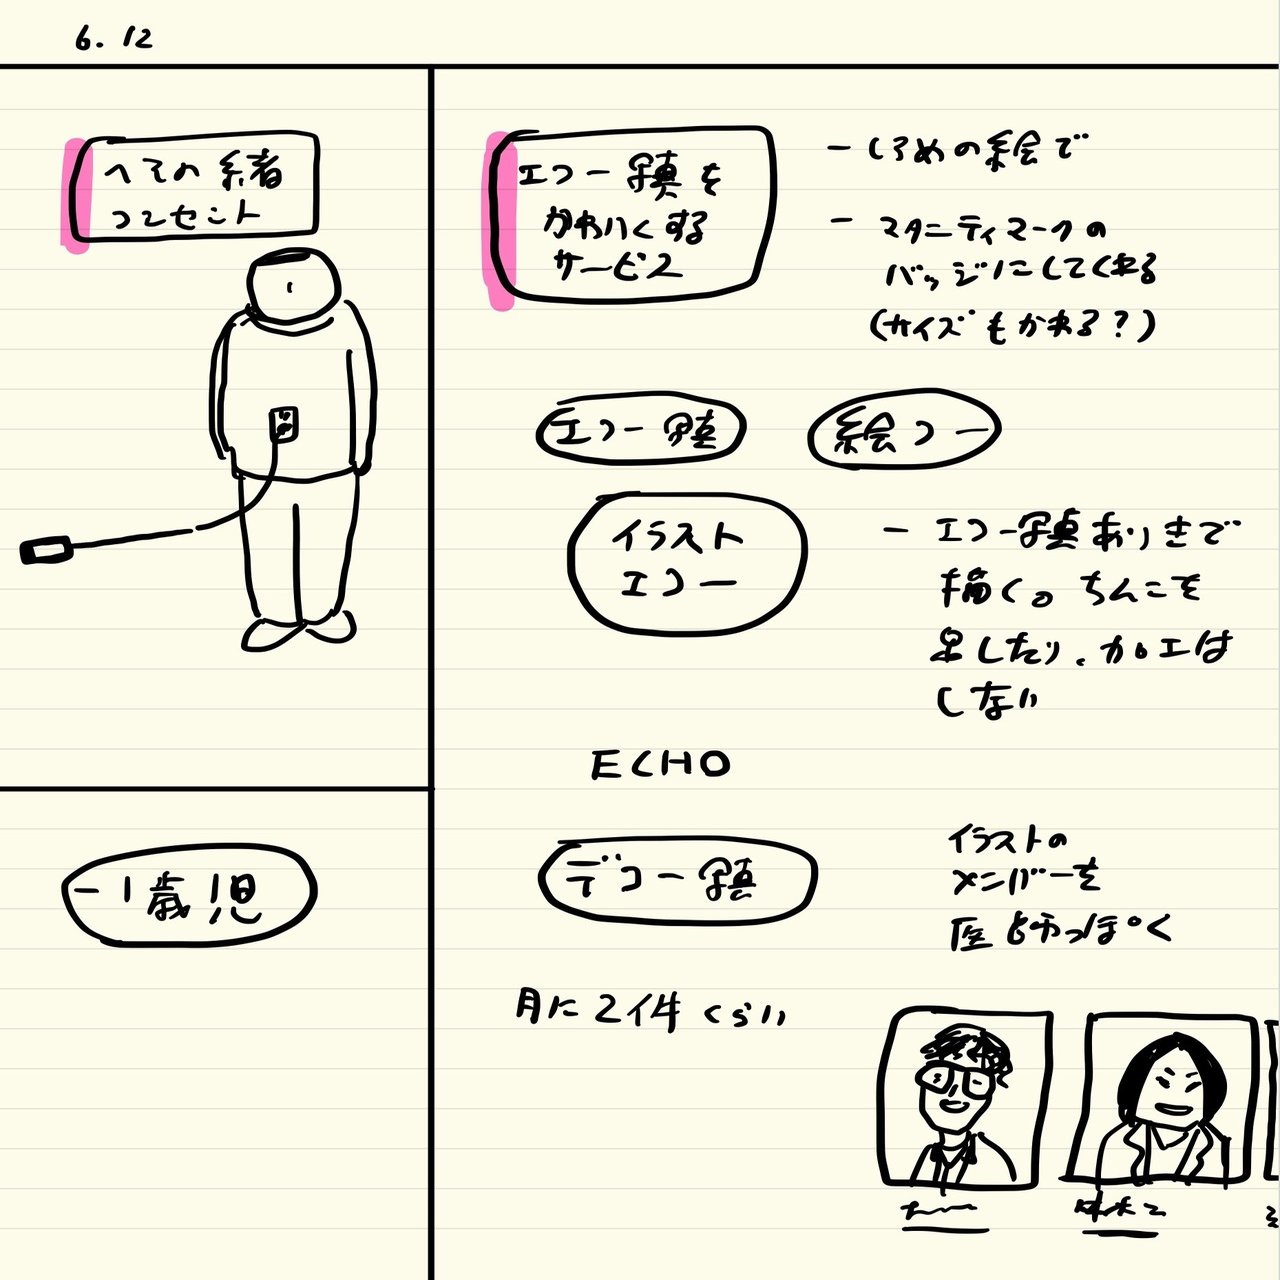 6.12
へその緒
コンセント
エコー写真を
かわいくする
サービス
ー しろめの絵で
ー マタニティマークの
バッジにしてくれる
(サイズもかわる?)
エコー写真
絵コー
イラスト
エコー
ー エコー写真ありきで
描く。ちんこを
足したり、加工は
しない
ECHO
-1歳児
デコー写真
イラストの
メンバーを
医師っぽく
月に2件くらい